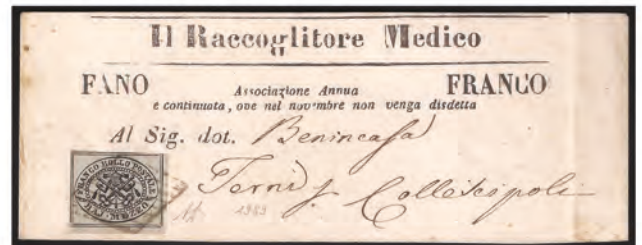 Il Raccoglitore Medico
FANO
FRANCO
Associazione Annua
e continuata, ove nel novembre non venga disdetta
Al Sig. dot. Benincasa
Terni p. Collescipoli
FRANCO BOLLO POSTALE
1859